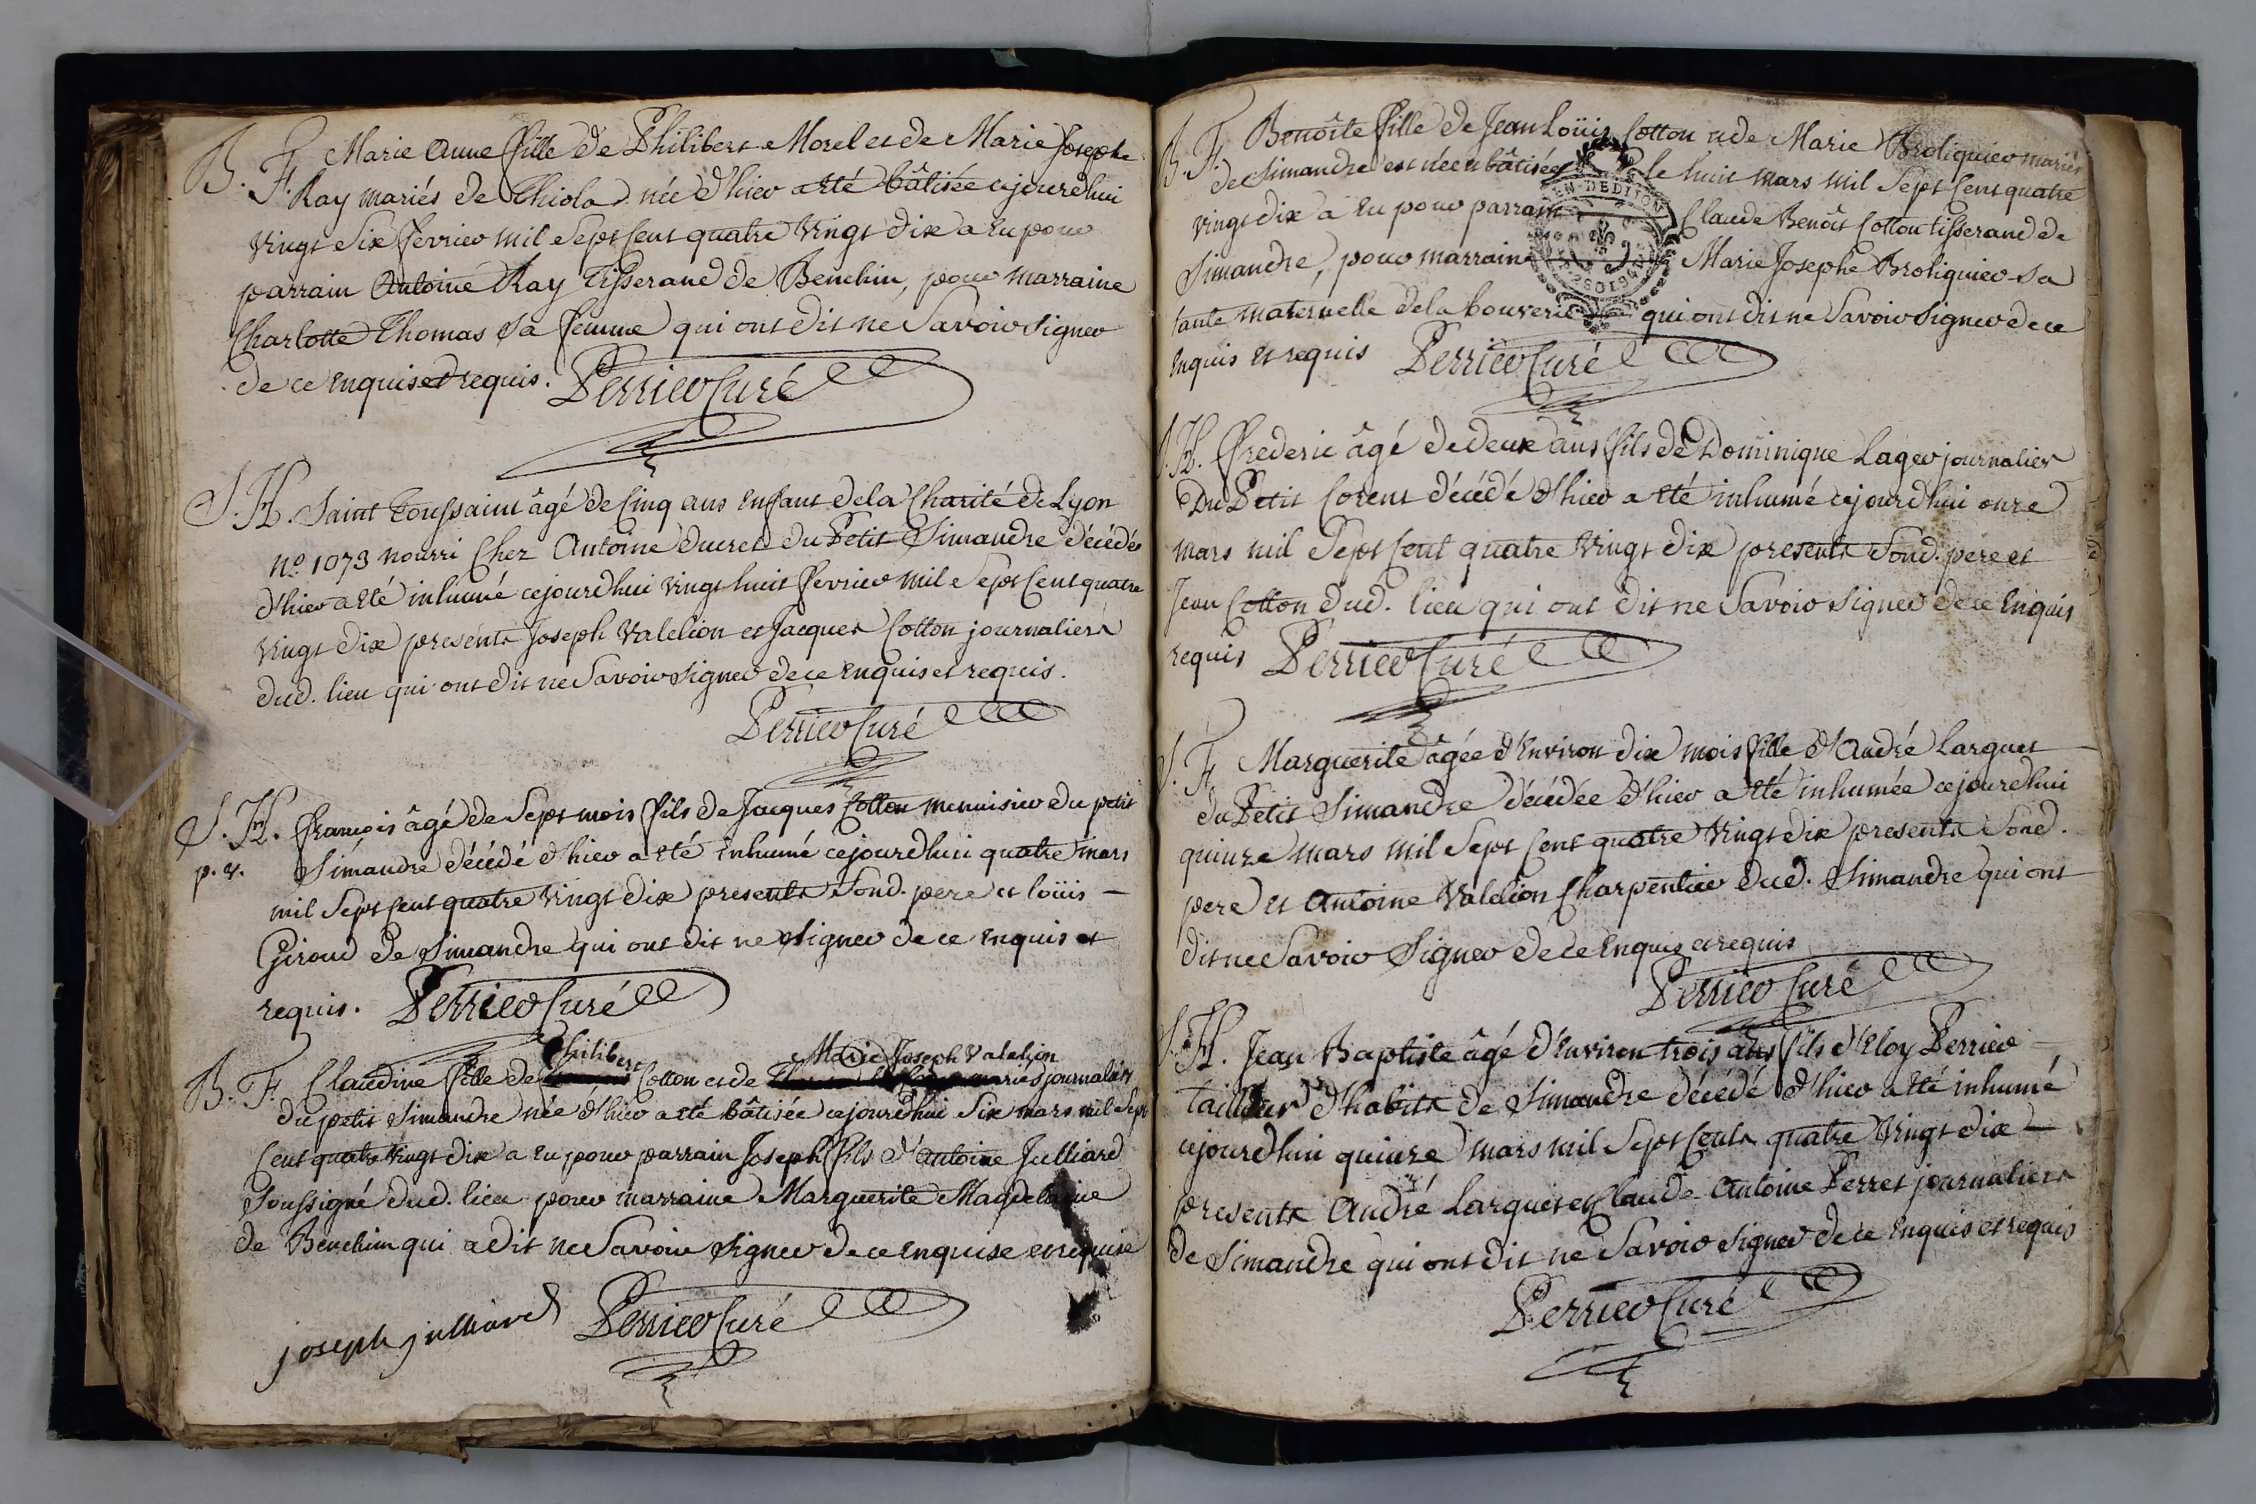 B. F. Marie Anne fille de Philibert Morel et de Marie Josephe
Ray mariés de Thiola. née d'hier a été bâtisée cejourd'hui
vingt six fevrier mil sept cent quatre vingt dix a eu pour
parrain Antoine Ray Tisserand de Benchin, pour marraine
Charlotte Thomas sa femme qui ont dit ne savoir signer
de ce enquis et requis. Perrier Curé
S. H. Saint Toussaint âgé de cinq ans enfant de la Charité de Lyon
n° 1073 nourri chez Antoine Ducret du Petit Simandre décédé
d'hier a été inhumé cejourd'hui vingt huit fevrier mil sept cent quatre
vingt dix presents Joseph Valelion et Jacques Cotton journaliers
dud. lieu qui ont dit ne savoir signer de ce enquis et requis.
Perrier Curé
S. H. François âgé de sept mois fils de Jacques Cotton menuisier du petit
p. v. Simandre décédé d'hier a été inhumé cejourd'hui quatre mars
mil sept cent quatre vingt dix presents sond. pere et loüis
Giroud de Simandre qui ont dit ne signer de ce enquis et
requis. Perrier Curé
Philibert Marie Joseph Valelion
B. F. Claudine fille de Cotton et de mariés journaliers
du petit Simandre née d'hier a été bâtisée cejourd'hui six mars mil sept
cent quatre vingt dix a eu pour parrain Joseph fils d'Antoine Julliard
soussigné dud. lieu pour marraine Marguerite Magdelaine
de Benchin qui a dit ne savoir signer de ce enquise et requise
joseph julliard Perrier Curé
B. F. Benoîte fille de Jean Loüis Cotton et de Marie Broliquier mariés
de Simandre est née et bâtisée le huit mars mil sept cent quatre
vingt dix a eu pour parrain Claude Benoît Cotton tisserand de
Simandre, pour marraine Marie Josephe Broliquier sa
tante maternelle de la bouverie qui ont dit ne savoir signer de ce
enquis et requis Perrier Curé
S. H. Frederic âgé de deux ans fils de Dominique Lager journalier
du Petit Corent décédé d'hier a été inhumé cejourd'hui onze
mars mil sept cent quatre vingt dix presents sond. pere et
Jean Cotton dud. lieu qui ont dit ne savoir signer de ce enquis
requis Perrier Curé
S. F. Marguerite âgée d'environ dix mois fille d'André Larguet
du Petit Simandre décédée d'hier a été inhumée cejourd'hui
quinze mars mil sept cent quatre vingt dix presents sond.
pere et Antoine Valelion Charpentier dud. Simandre qui ont
dit ne savoir signer de ce enquis et requis
Perrier Curé
S. H. Jean Baptiste âgé d'environ trois ans fils d'Eloy Perrier
tailleur d'habits de Simandre décédé d'hier a été inhumé
cejourd'hui quinze mars mil sept cents quatre vingt dix
presents André Larguet et Claude Antoine Perret journaliers
de Simandre qui ont dit ne savoir signer de ce enquis et requis
Perrier Curé